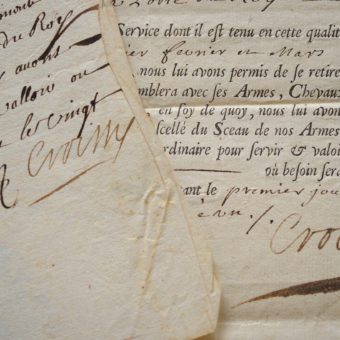 du Roy
avons
le vingt
Croissy
Service dont il est tenu en cette qualit
ier fevrier et Mars
nous lui avons permis de se retire
mblera avec ses Armes, Chevaux
en foy de quoy, nous lui avon
scellé du Sceau de nos Armes
rdinaire pour servir & valoi
où besoin sera
ant le premier jou